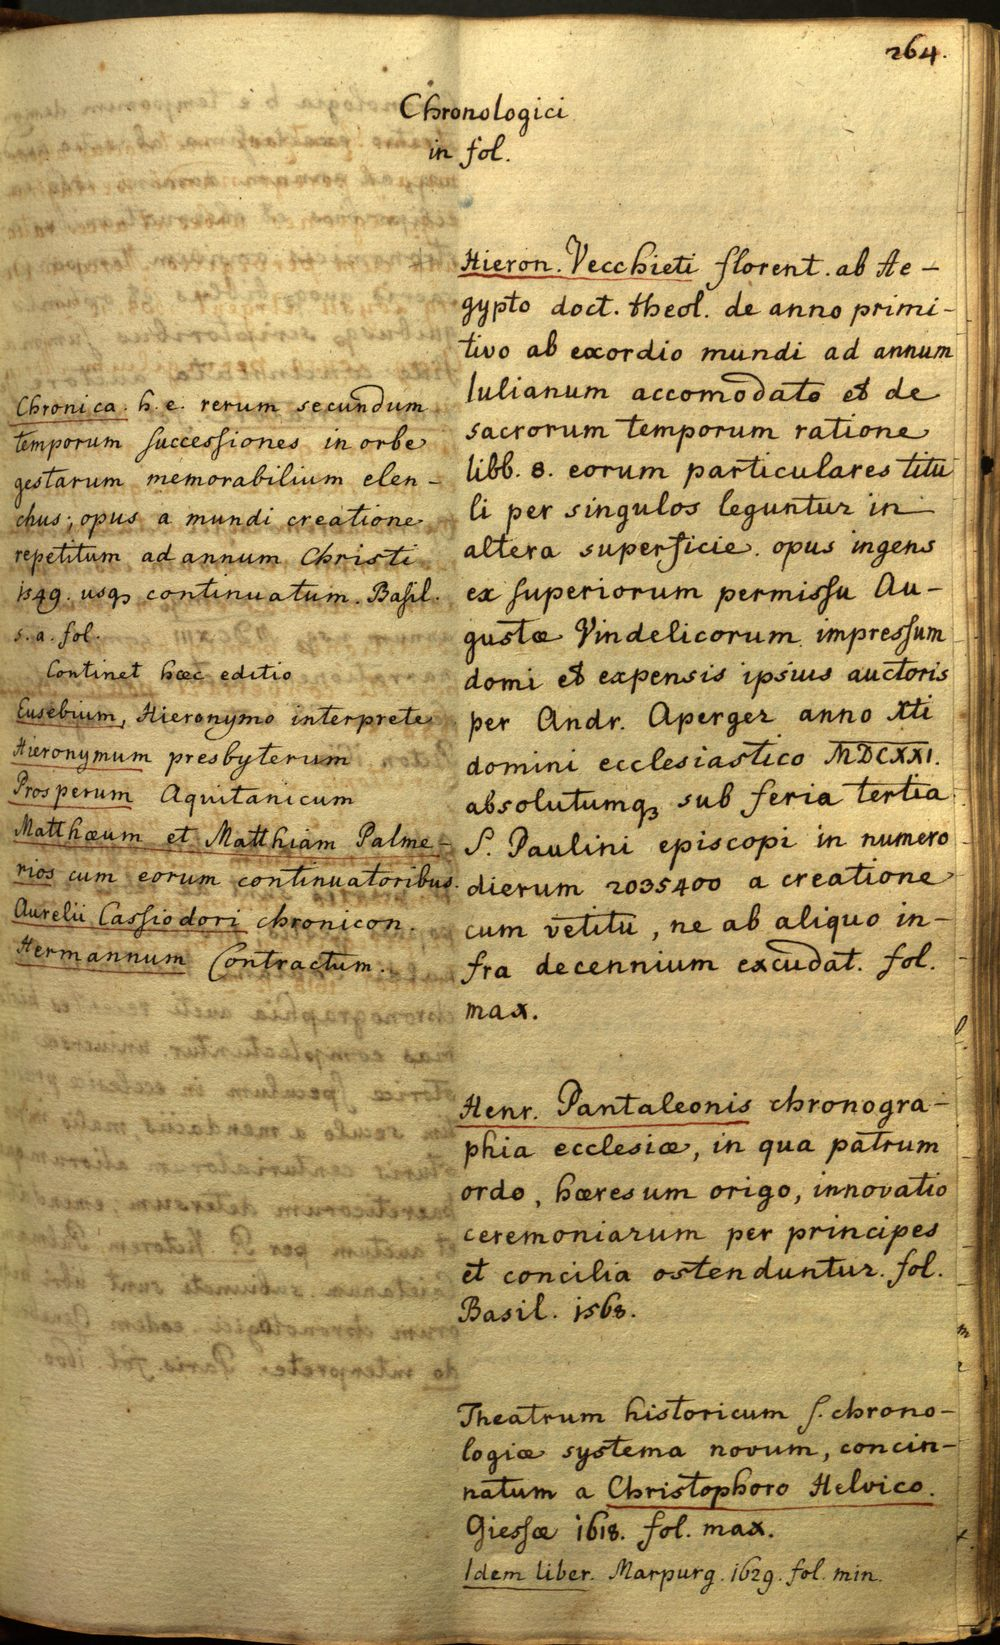 264.
Chronologici
in fol.
Chronica. h. e. rerum secundum
temporum successiones in orbe
gestarum memorabilium elen-
chus; opus a mundi creatione
repetitum ad annum Christi
1549. usq continuatum. Basil.
s. a. fol.
Continet hæc editio
Eusebium, Hieronymo interprete
Hieronymum presbyterum
Prosperum Aquitanicum
Matthæum et Matthiam Palme-
rios cum eorum continuatoribus.
Aurelii Cassiodori chronicon.
Hermannum Contractum.
Hieron. Vecchieti florent. ab Ae-
gypto doct. theol. de anno primi-
tivo ab exordio mundi ad annum
Iulianum accomodato et de
sacrorum temporum ratione
libb. 8. eorum particulares titu
li per singulos leguntur in
altera superficie. opus ingens
ex superiorum permissu Au-
gustæ Vindelicorum impressum
domi et expensis ipsius auctoris
per Andr. Aperger anno Xti
domini ecclesiastico MDCXXI.
absolutumq sub feria tertia
S. Paulini episcopi in numero
dierum 2035400 a creatione
cum vetitu, ne ab aliquo in-
fra decennium excudat. fol.
max.
Henr. Pantaleonis chronogra-
phia ecclesiæ, in qua patrum
ordo, hæresum origo, innovatio
ceremoniarum per principes
et concilia ostenduntur. fol.
Basil. 1568.
Theatrum historicum s. chrono-
logiæ systema novum, concin-
natum a Christophoro Helvico.
Giessæ 1618. fol. max.
Idem liber. Marpurg. 1629. fol. min.